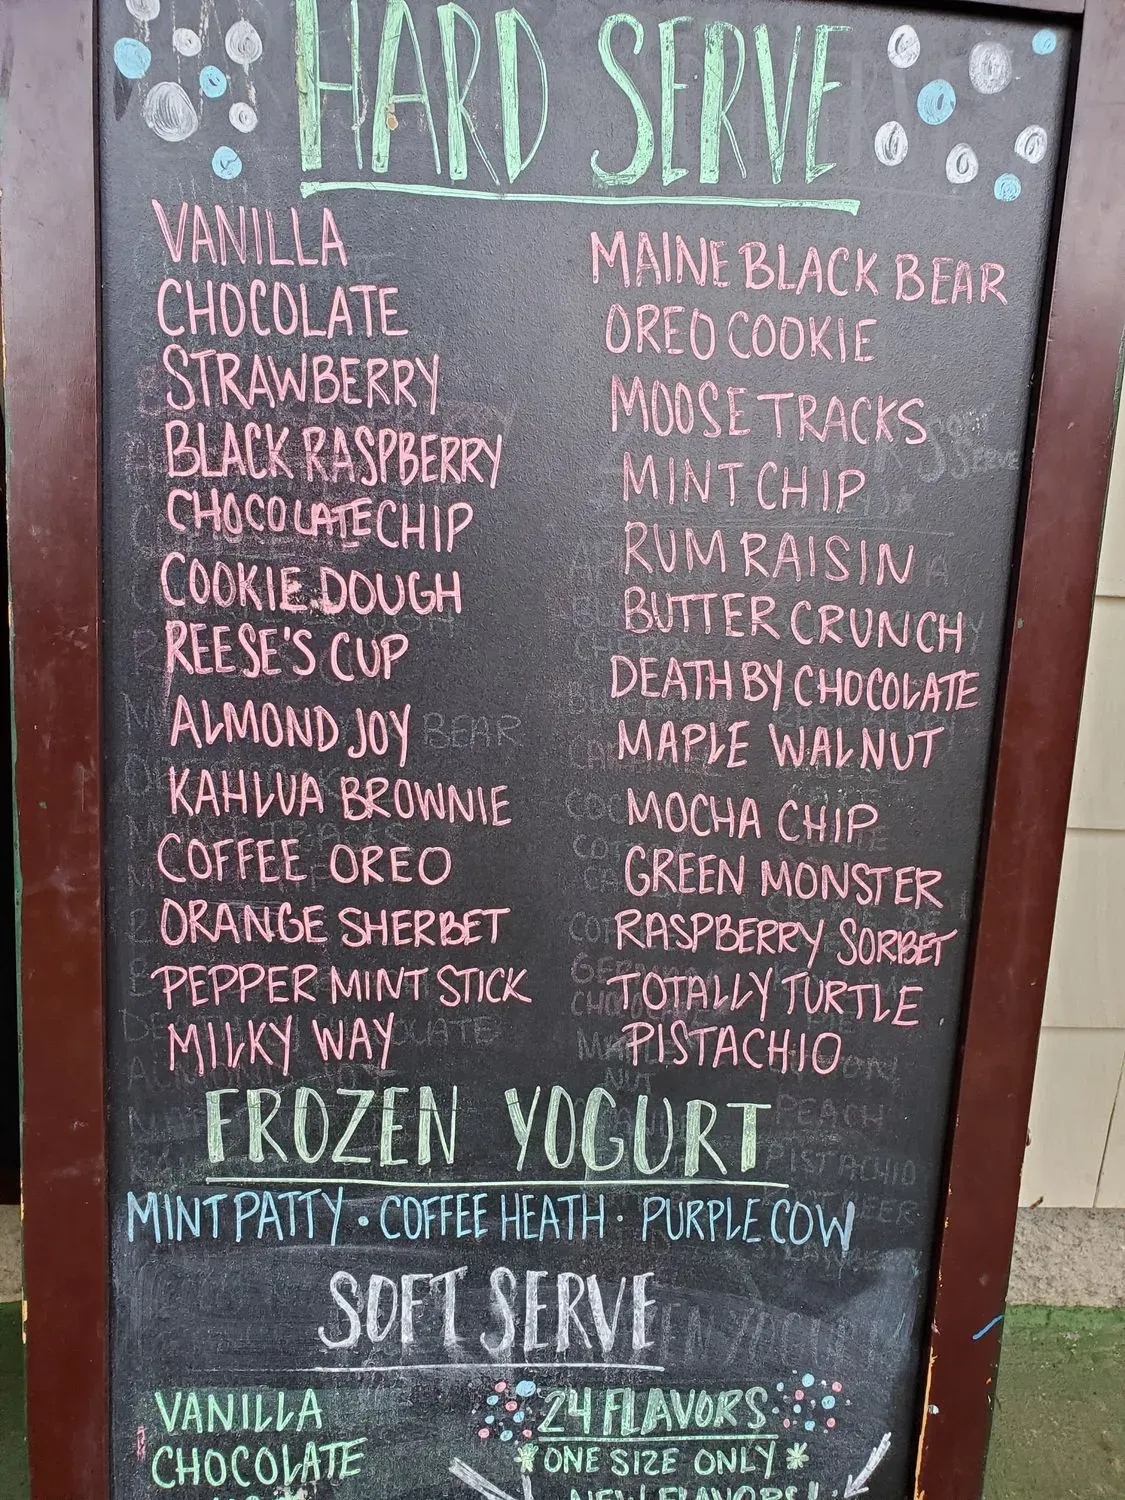 HARD SERVE
VANILLA
CHOCOLATE
STRAWBERRY
BLACK RASPBERRY
CHOCOLATE CHIP
COOKIE DOUGH
REESE'S CUP
ALMOND JOY
KAHLUA BROWNIE
COFFEE OREO
ORANGE SHERBET
PEPPERMINT STICK
MILKY WAY
MAINE BLACK BEAR
OREO COOKIE
MOOSE TRACKS
MINT CHIP
RUM RAISIN
BUTTER CRUNCH
DEATH BY CHOCOLATE
MAPLE WALNUT
MOCHA CHIP
GREEN MONSTER
RASPBERRY SORBET
TOTALLY TURTLE
PISTACHIO
FROZEN YOGURT
MINT PATTY · COFFEE HEATH · PURPLE COW
SOFT SERVE
VANILLA
CHOCOLATE
24 FLAVORS
*ONE SIZE ONLY*
NEW FLAVORS!